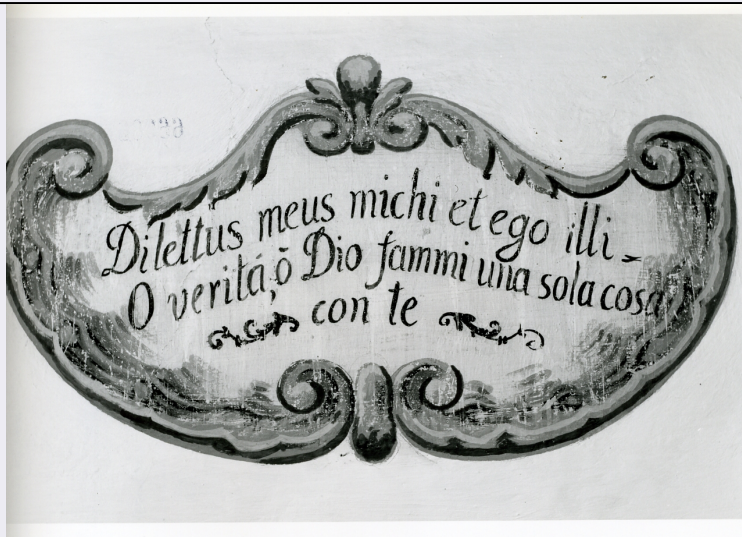 Dilettus meus michi et ego illi -
O veritá, õ Dio fammi una sola cosa
con te